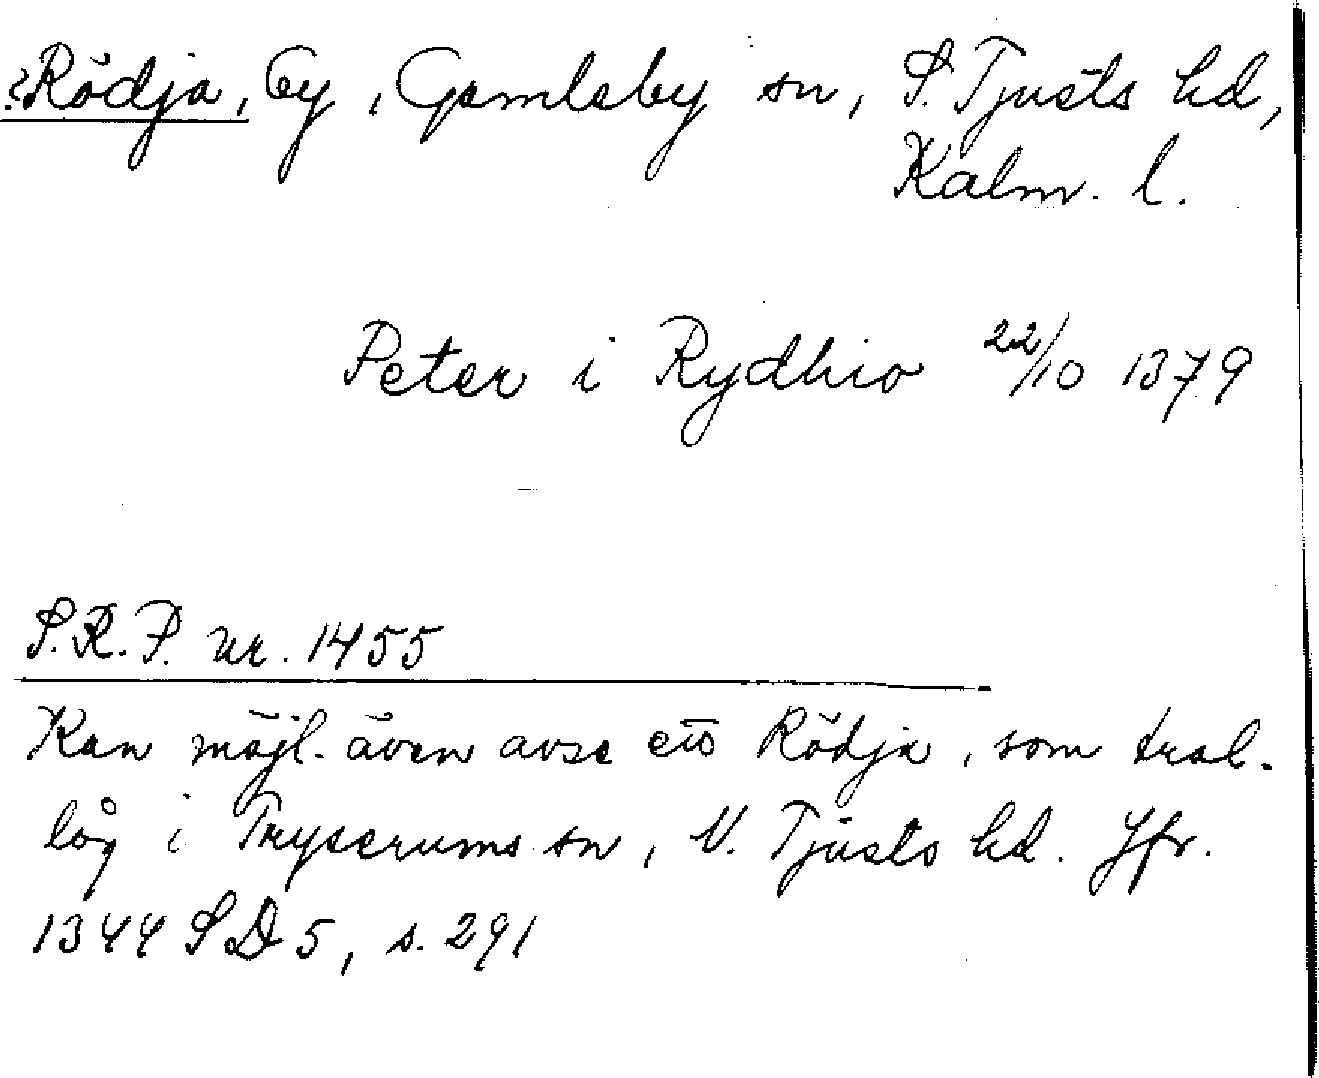 ?Rödja, by, Gamleby sn, S. Tjusts hd,
Kalm. l.
Peter i Rydhio 22/10 1379
S.R.P. nr. 1455
Kan möjl. även avse ett Rödja, som
låg i Tryserums sn, N. Tjusts hd. Jfr.
1344 SD 5, s. 291